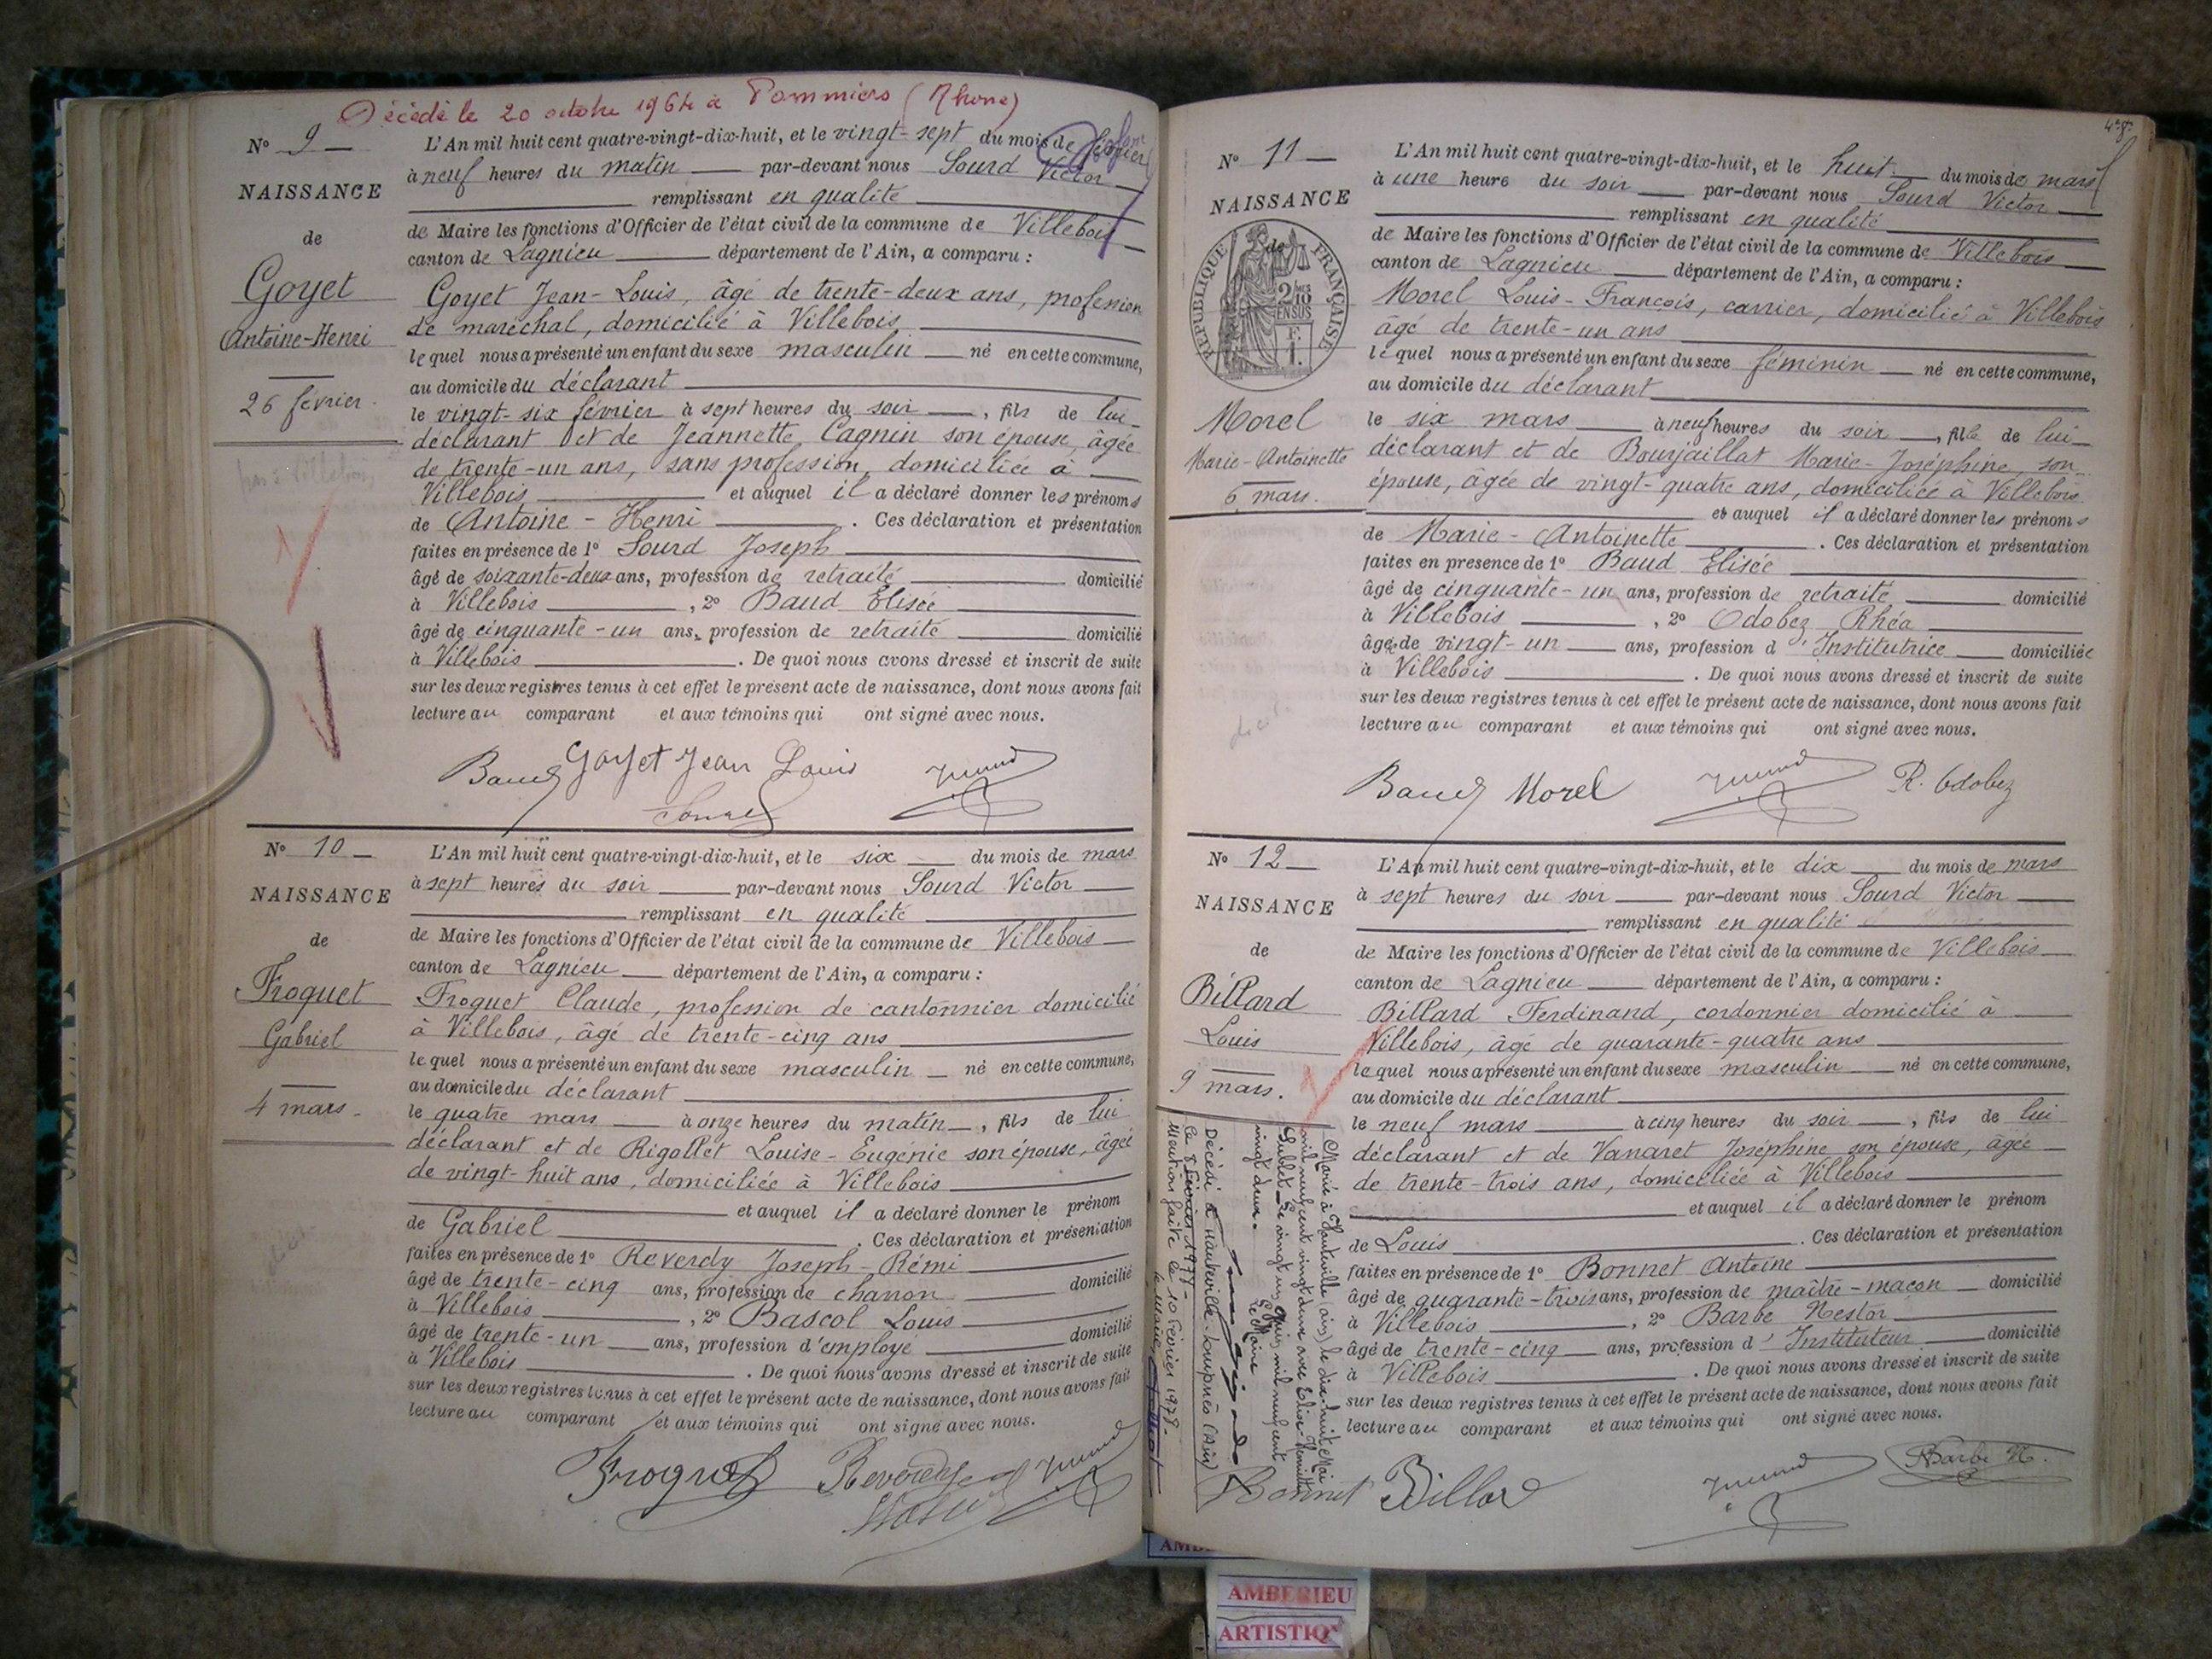 Décédé le 20 octobre 1964 à Pommiers (Rhone)
N° 9
NAISSANCE
de
Goyet
Antoine-Henri
26 février.
L'An mil huit cent quatre-vingt-dix-huit, et le vingt-sept du mois de février
à neuf heures du matin par-devant nous Sourd Victor
remplissant en qualité
de Maire les fonctions d'Officier de l'état civil de la commune de Villebois
canton de Lagnieu département de l'Ain, a comparu :
Goyet Jean-Louis, âgé de trente-deux ans, profession
de maréchal, domicilié à Villebois
lequel nous a présenté un enfant du sexe masculin né en cette commune,
au domicile du déclarant
le vingt-six février à sept heures du soir, fils de lui
déclarant et de Jeannette Cagnin son épouse, âgée
de trente-un ans, sans profession, domiciliée à
Villebois et auquel il a déclaré donner les prénoms
de Antoine-Henri. Ces déclaration et présentation
faites en présence de 1° Sourd Joseph
âgé de soixante-deux ans, profession de retraité domicilié
à Villebois, 2° Baud Elisée
âgé de cinquante-un ans, profession de retraité domicilié
à Villebois. De quoi nous avons dressé et inscrit de suite
sur les deux registres tenus à cet effet le présent acte de naissance, dont nous avons fait
lecture au comparant et aux témoins qui ont signé avec nous.
Baud Goyet Jean Louis
Sourd
N° 10
NAISSANCE
de
Froquet
Gabriel
4 mars.
L'An mil huit cent quatre-vingt-dix-huit, et le six du mois de mars
à sept heures du soir par-devant nous Sourd Victor
remplissant en qualité
de Maire les fonctions d'Officier de l'état civil de la commune de Villebois
canton de Lagnieu département de l'Ain, a comparu :
Froquet Claude, profession de cantonnier domicilié
à Villebois, âgé de trente-cinq ans
lequel nous a présenté un enfant du sexe masculin né en cette commune,
au domicile du déclarant
le quatre mars à onze heures du matin, fils de lui
déclarant et de Rigollet Louise-Eugénie son épouse, âgée
de vingt-huit ans, domiciliée à Villebois
et auquel il a déclaré donner le prénom
de Gabriel. Ces déclaration et présentation
faites en présence de 1° Reverdy Joseph-Rémi
âgé de trente-cinq ans, profession de charron domicilié
à Villebois, 2° Bascol Louis
âgé de trente-un ans, profession d'employé domicilié
à Villebois. De quoi nous avons dressé et inscrit de suite
sur les deux registres tenus à cet effet le présent acte de naissance, dont nous avons fait
lecture au comparant et aux témoins qui ont signé avec nous.
Froquet Reverdy
N° 11
NAISSANCE
de
RÉPUBLIQUE FRANÇAISE
2/10 EN SUS
F. 1.
Morel
Marie-Antoinette
6 mars.
L'An mil huit cent quatre-vingt-dix-huit, et le huit du mois de mars
à une heure du soir par-devant nous Sourd Victor
remplissant en qualité
de Maire les fonctions d'Officier de l'état civil de la commune de Villebois
canton de Lagnieu département de l'Ain, a comparu :
Morel Louis-François, carrier, domicilié à Villebois
âgé de trente-un ans
lequel nous a présenté un enfant du sexe féminin né en cette commune,
au domicile du déclarant
le six mars à neuf heures du soir, fille de lui
déclarant et de Bourjaillat Marie-Joséphine, son
épouse, âgée de vingt-quatre ans, domiciliée à Villebois
et auquel il a déclaré donner les prénoms
de Marie-Antoinette. Ces déclaration et présentation
faites en présence de 1° Baud Elisée
âgé de cinquante-un ans, profession de retraité domicilié
à Villebois, 2° Odobez Rhéa
âgée de vingt-un ans, profession d'Institutrice domiciliée
à Villebois. De quoi nous avons dressé et inscrit de suite
sur les deux registres tenus à cet effet le présent acte de naissance, dont nous avons fait
lecture au comparant et aux témoins qui ont signé avec nous.
Baud Morel R. Odobez
N° 12
NAISSANCE
de
Billard
Louis
9 mars.
Marié à Hauteville (Ain) le dix huit Mai
mil neuf cent vingt deux avec Elise
Le vingt un mil neuf cent
vingt deux.
Le Maire
Décédé à Hauteville-Lompnès (Ain)
le 8 février 1978
Mention faite le 10 février 1978
Le Maire
L'An mil huit cent quatre-vingt-dix-huit, et le dix du mois de mars
à sept heures du soir par-devant nous Sourd Victor
remplissant en qualité
de Maire les fonctions d'Officier de l'état civil de la commune de Villebois
canton de Lagnieu département de l'Ain, a comparu :
Billard Ferdinand, cordonnier domicilié à
Villebois, âgé de quarante-quatre ans
lequel nous a présenté un enfant du sexe masculin né en cette commune,
au domicile du déclarant
le neuf mars à cinq heures du soir, fils de lui
déclarant et de Vanaret Joséphine son épouse, âgée
de trente-trois ans, domiciliée à Villebois
et auquel il a déclaré donner le prénom
de Louis. Ces déclaration et présentation
faites en présence de 1° Bonnet Antoine
âgé de quarante-trois ans, profession de maître-maçon domicilié
à Villebois, 2° Barbe Nestor
âgé de trente-cinq ans, profession d'Instituteur domicilié
à Villebois. De quoi nous avons dressé et inscrit de suite
sur les deux registres tenus à cet effet le présent acte de naissance, dont nous avons fait
lecture au comparant et aux témoins qui ont signé avec nous.
Bonnet Billard Barbe N.
AMBERIEU
ARTISTIQ